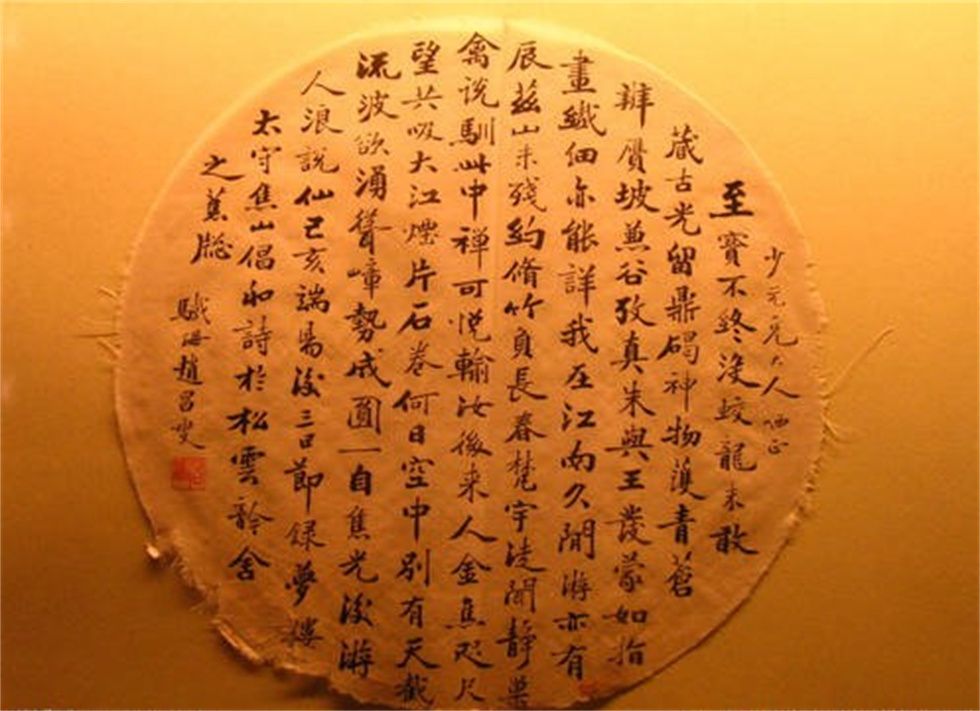 少元兄大人哂正
至寶不終沒蛟龍未敢
藏古光留鼎碣神物護青蒼
辦贗坡兼谷攷真朱與王發蒙如指
畫纖細亦能詳我在江南久閒游亦有
辰茲山未殘約脩竹負長春梵宇淩閒靜巢
禽說馴此中禪可悅輸汝後来人金焦咫尺
望共吸大江煙片石卷何日空中別有天截
流波欲湧聳嶂勢成圓一自焦光後游
人浪說仙己亥端陽後三日節録夢樓
太守焦山倡和詩於松雲舍
之蕉牕
海趙昌